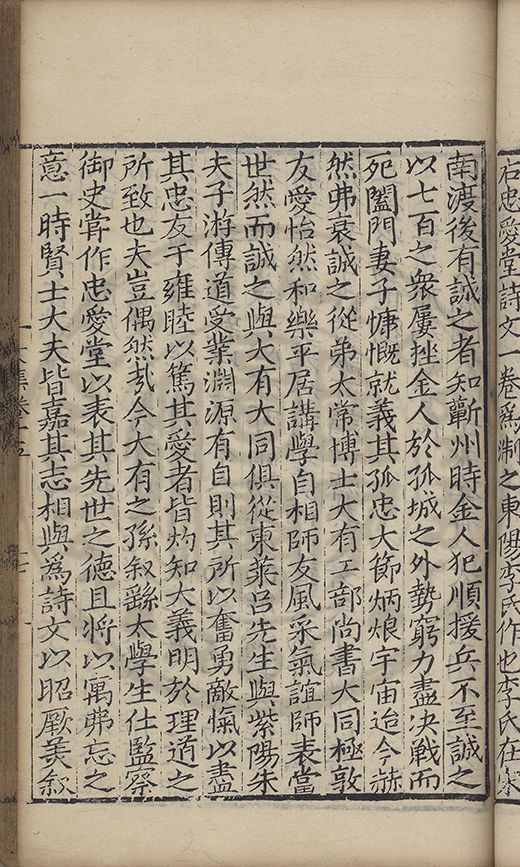 右忠愛堂詩文一卷爲浙之東陽李氏作也李氏在宋
南渡後有誠之者知蘄州時金人犯順援兵不至誠之
以七百之衆屢挫金人於孤城之外勢窮力盡决戰而
死闔門妻子慷慨就義其孤忠大節炳烺宇宙迨今赫
然弗衰誠之從弟太常博士大有工部尚書大同極敦
友愛怡然和樂平居講學自相師友風采氣誼師表當
世然而誠之與大有大同俱從東萊吕先生與紫陽朱
夫子游傳道受業淵源有自則其所以奮勇敵愾以盡
其忠友于雍睦以篤其愛者皆灼知大義明於理道之
所致也夫豈偶然㢤今大有之孫叙繇太學生仕監察
御史甞作忠愛堂以表其先世之德且將以寓弗忘之
意一時賢士大夫皆嘉其志相與爲詩文以昭厥美叙